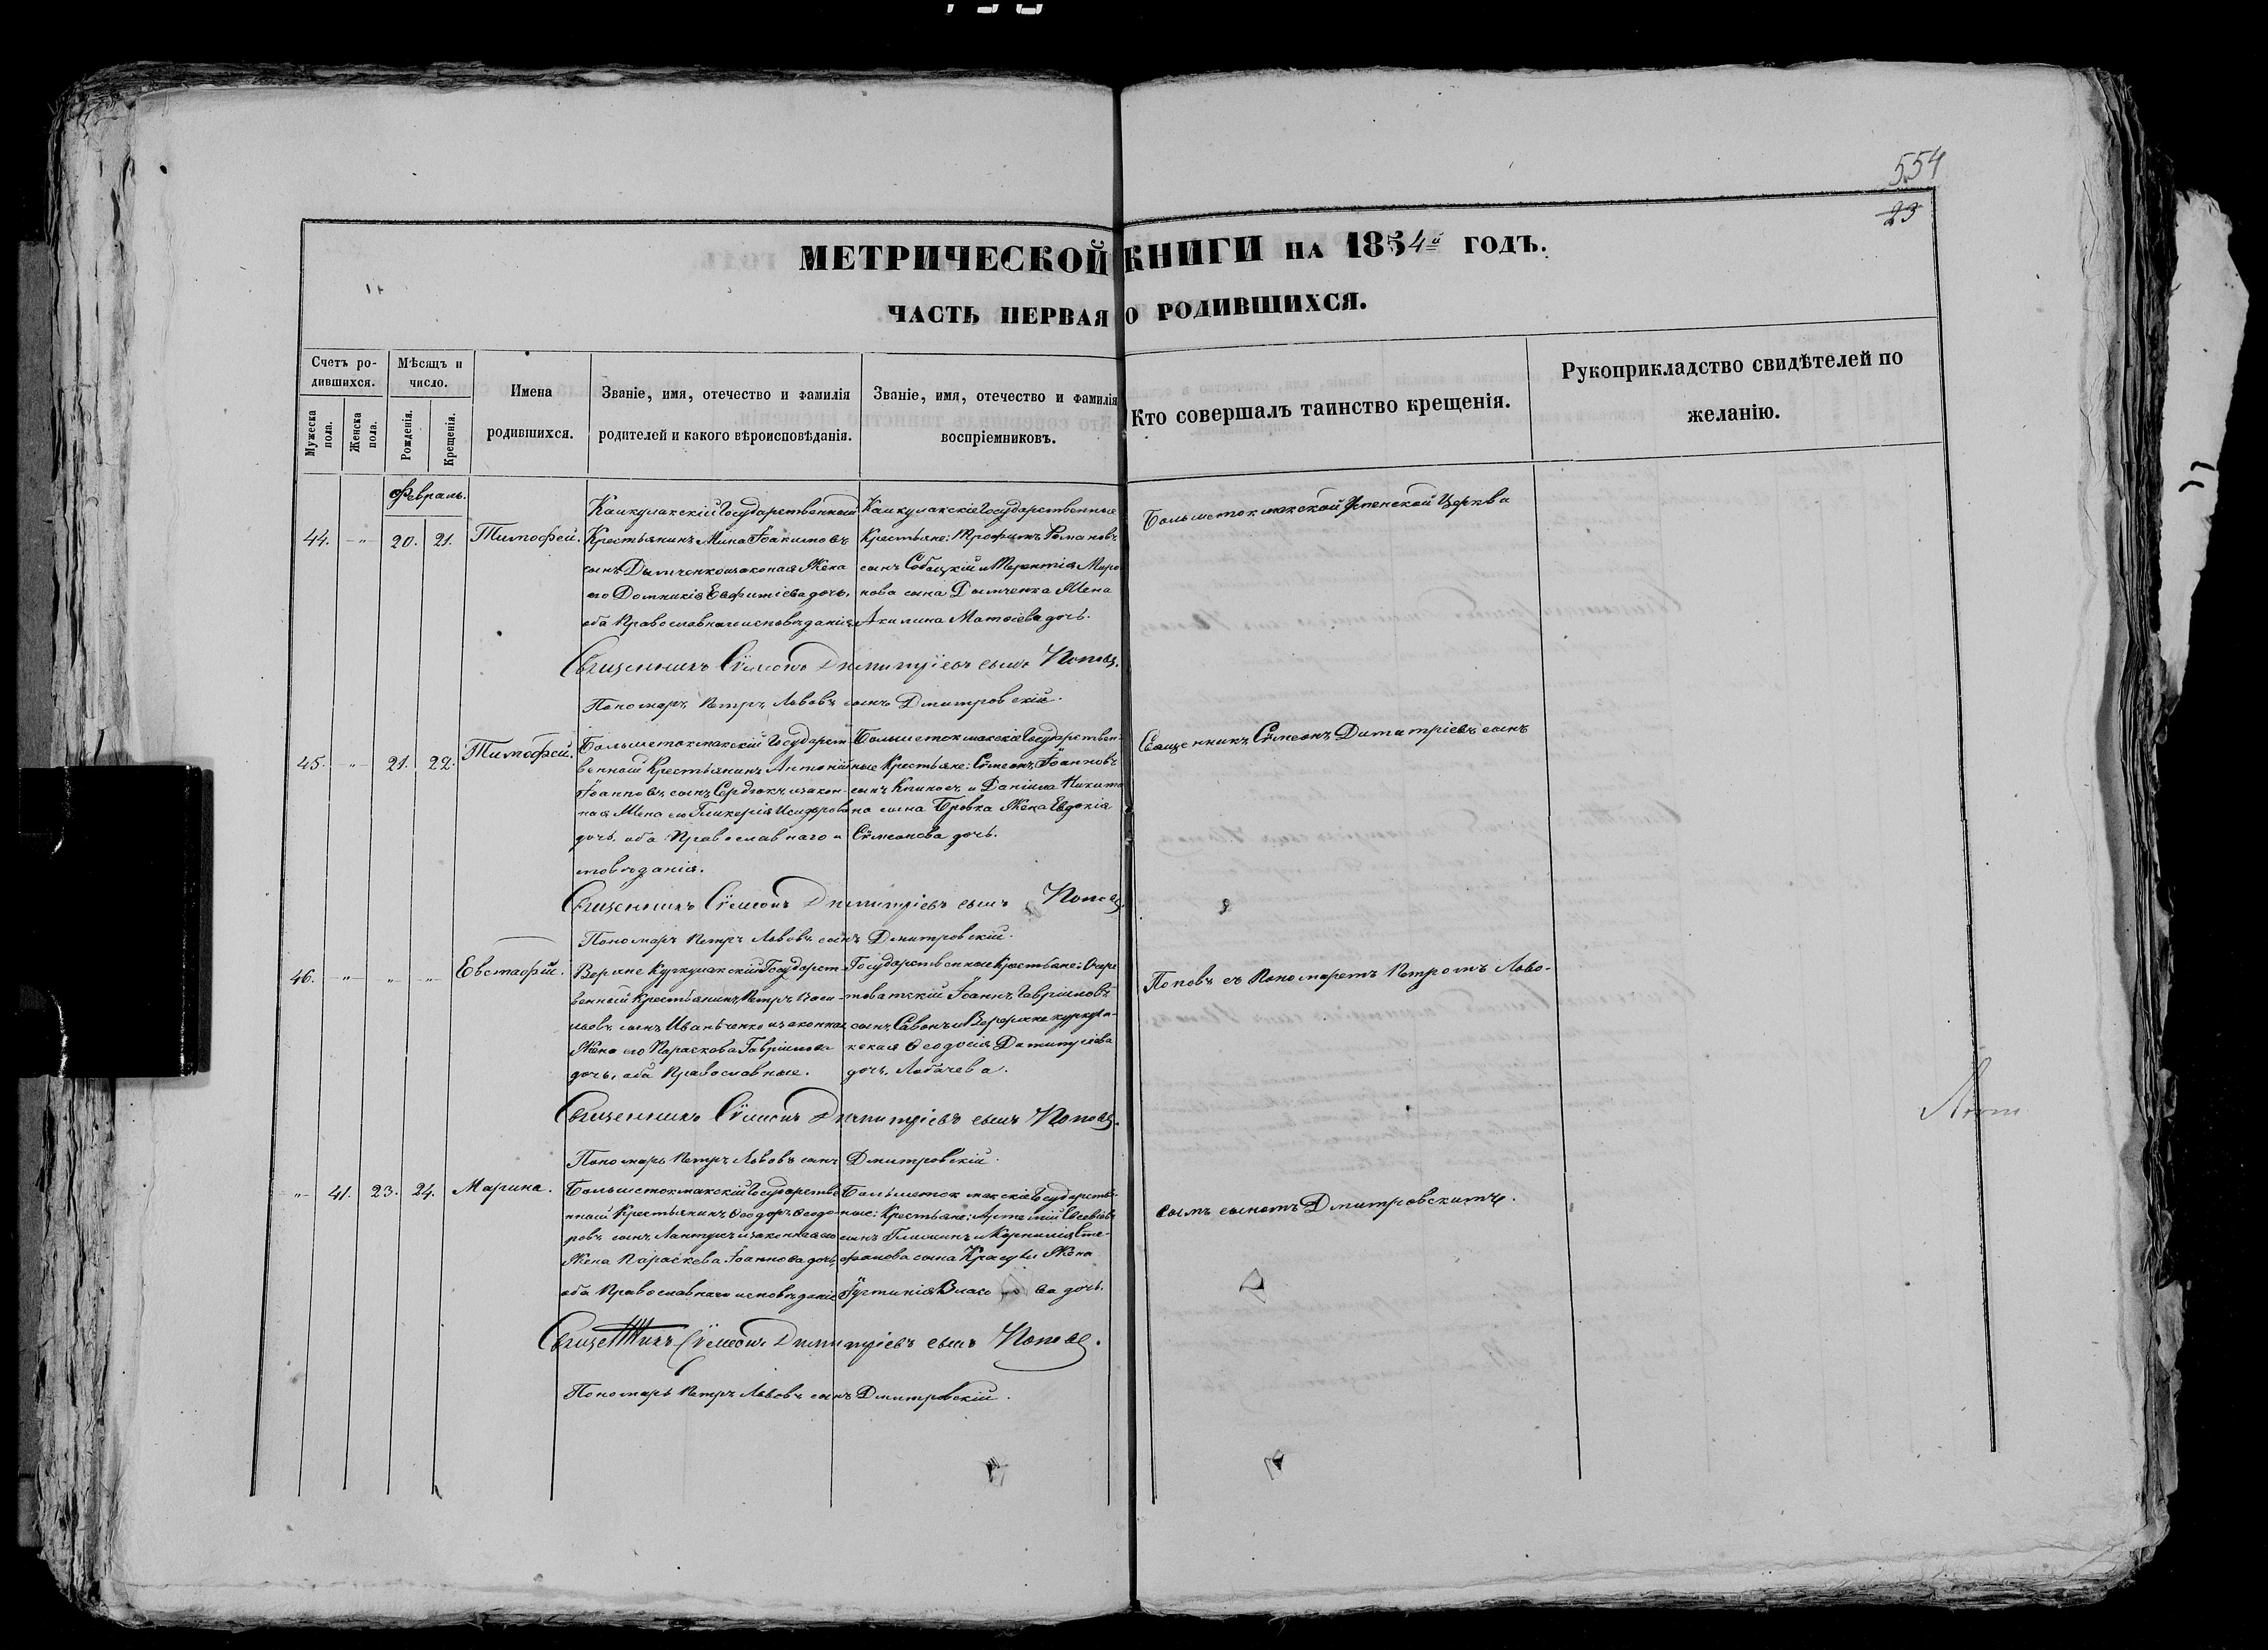 554
23
МЕТРИЧЕСКОЙ КНИГИ НА 1854й ГОДЪ.
ЧАСТЬ ПЕРВАЯ О РОДИВШИХСЯ.
Счетъ родившихся.
Мужеска пола.
Женска пола.
Мѣсяцъ и число.
Рожденія.
Крещенія.
Имена родившихся.
Званіе, имя, отечество и фамилія родителей и какого вѣроисповѣданія.
Званіе, имя, отечество и фамилія воспріемниковъ.
Кто совершалъ таинство крещенія.
Рукоприкладство свидѣтелей по желанію.
Февраль.
44. -"- 20. 21. Тимофей.
Камкулакскій Государственный
Крестьянинъ Мина Іоакимовъ
сынъ Дымченко и законая Жена
его Домникія Евфиміева дочь,
оба Православнаго исповѣданія.
Камкулакскіе Государственные
Крестьяне: Трофимъ Романовъ
сынъ Собецкій и Терентія Миро
нова сына Дымченка Жена
Акилина Матѳіева дочь.
Большетокмакской Успенской Церкви
Священникъ Сѵмеонъ Димитріевъ сынъ Поповъ.
Пономарь Петръ Львовъ сынъ Дмитровскій.
45. -"- 21. 22. Тимофей.
Большетокмакскій Государст-
венный Крестьянинъ Антоній
Іоанновъ сынъ Сердюкъ и закон-
ная Жена его Гликерія Исидорова
дочь, оба Православнаго и
сповѣданія.
Большетокмакскіе Государствен-
ные Крестьяне: Сѵмеонъ Іоанновъ
сынъ Климовъ и Даніила Никити
на сына Бровка Жена Евдокія
Сѵмеонова дочь.
Священникъ Сѵмеонъ Димитріевъ сынъ
Священникъ Сѵмеонъ Димитріевъ сынъ Поповъ.
Пономарь Петръ Львовъ сынъ Дмитровскій.
46. -"- " -"- Евстафій.
Верхне Куркулакскій Государст-
венный Крестьянинъ Петръ Васи-
льевъ сынъ Иваньченко и законная
Жена его Параскева Гавріилова
дочь, оба Православные.
Государственные Крестьяне: Очере
товатскій Іоаннъ Гавріиловъ
сынъ Савонъ и Верхне куркула-
кская Ѳеодосія Димитріева
дочь Лобачева.
Поповъ съ Пономаремъ Петромъ Льво-
Священникъ Сѵмеонъ Димитріевъ сынъ Поповъ.
Пономарь Петръ Львовъ сынъ Дмитровскій.
-"- 41. 23. 24. Марина.
Большетокмакскій Государстве
нный Крестьянинъ Ѳеодоръ Ѳеодо
ровъ сынъ Лантухъ и законная его
Жена Параскева Іоаннова дочь,
оба Православнаго исповѣданія
Большетокмакскіе Государствен-
ные: Крестьяне: Артемій Евсевіевъ
сынъ Глишинъ и Корнилія Сте-
фанова сына Красули Жена
Іустинія Власова дочь.
вымъ сыномъ Дмитровскимъ.
Священникъ Сѵмеонъ Димитріевъ сынъ Поповъ.
Пономарь Петръ Львовъ сынъ Дмитровскій.